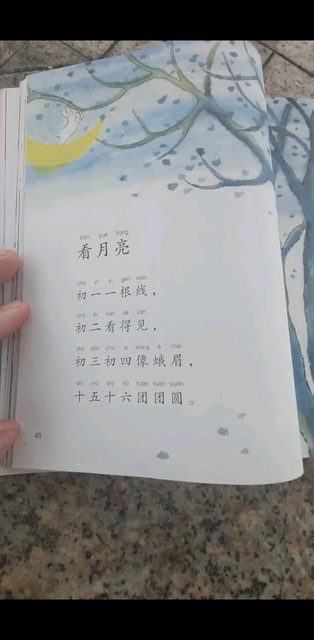 kàn yuè liang
看月亮
chū yī yī gēn xiàn
初一一根线，
chū èr kàn dé jiàn
初二看得见，
chū sān chū sì xiàng é méi
初三初四像蛾眉，
shí wǔ shí liù tuán tuán yuán
十五十六团团圆。
40